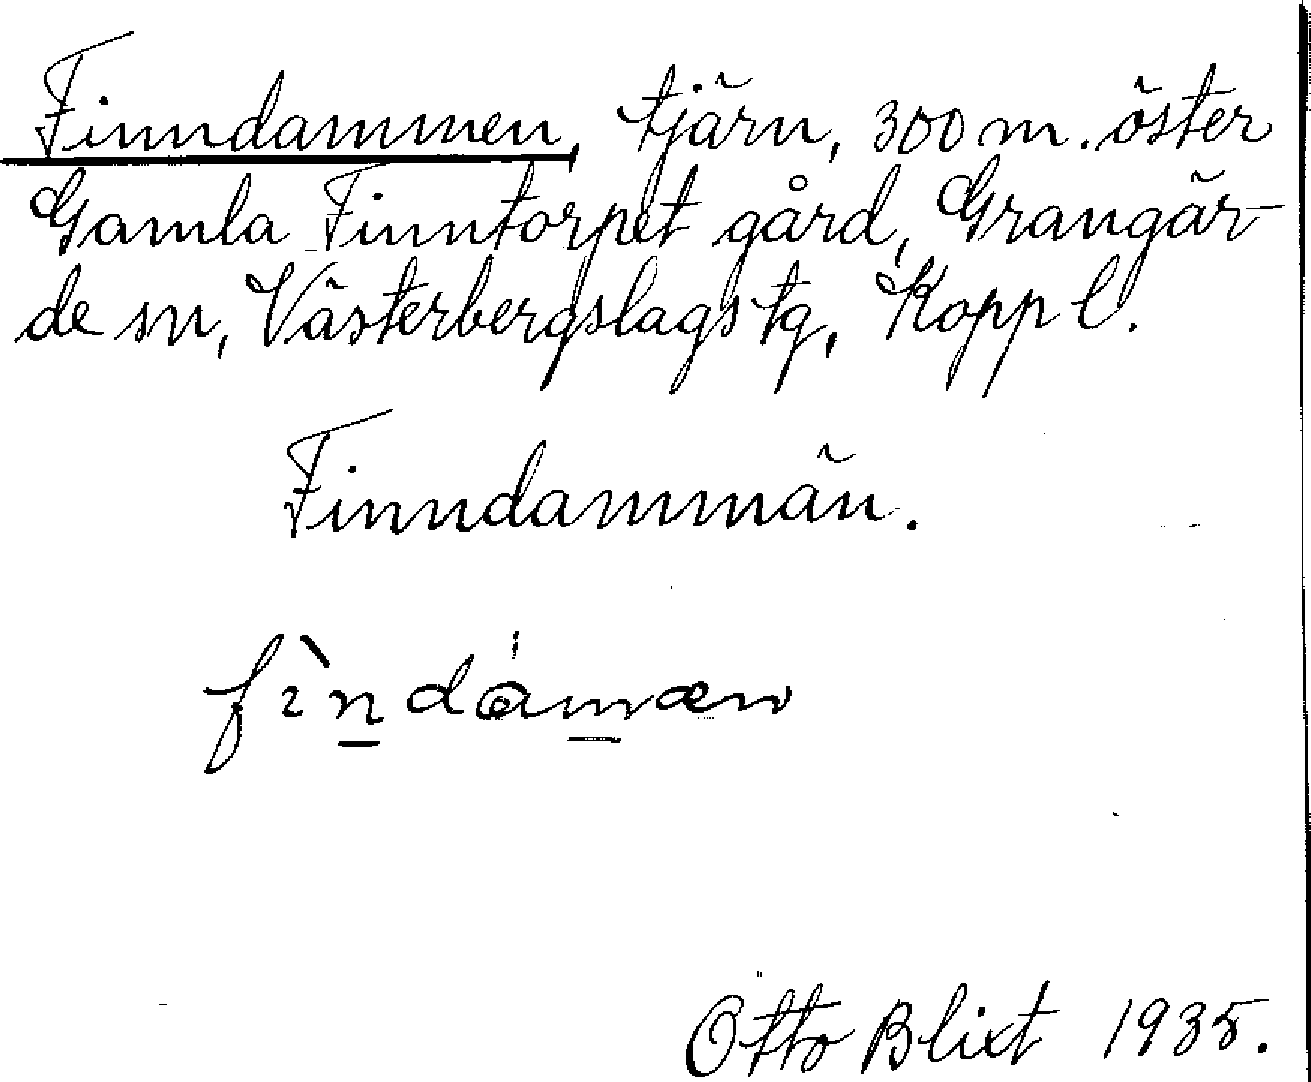 Finndammen, tjärn, 300 m. öster
Gamla Finntorpet gård, Grangär-
de sn, Västerbergslags tg, Kopp l.
Finndammän.
fìndámæn
Otto Blixt 1935.